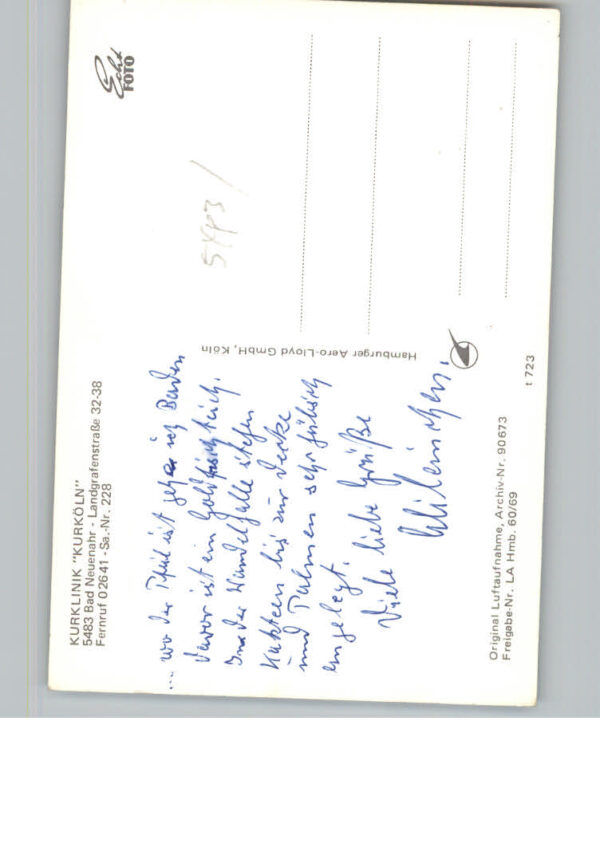 KURKLINIK "KURKÖLN"
5483 Bad Neuenahr - Landgrafenstraße 32-38
Fernruf 02641 - Sa.-Nr. 228
... wo der Pfeil ist gehe ich Baden
Davor ist ein Goldfischteich.
In der Wandelhalle stehen
Kakteen bis zur Decke
und Palmen sehr hübsch
angelegt.
Viele liebe Grüße
Original Luftaufnahme, Archiv-Nr. 90673
Freigabe-Nr. LA Hmb. 60/69
t 723
Hamburger Aero-Lloyd GmbH, Köln
Echt
FOTO